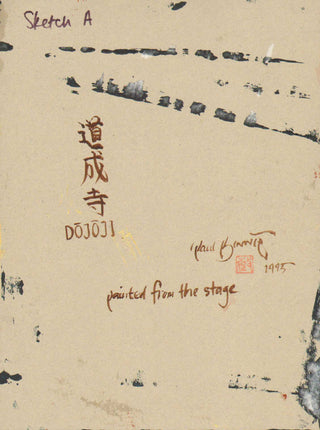 Sketch A
道
成
寺
DŌJŌJI
Paul Binnie
1995
painted from the stage